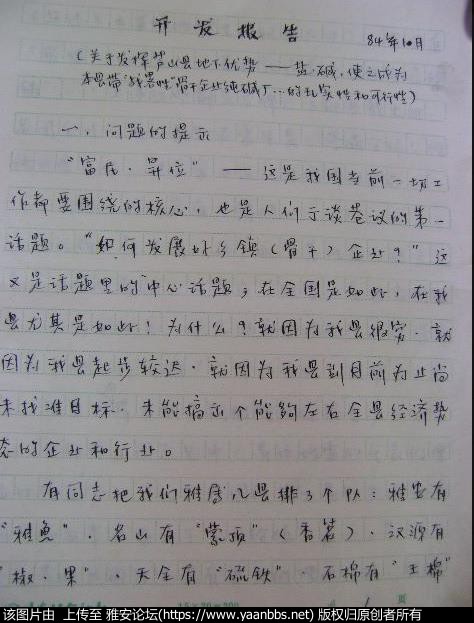 开发报告
84年10月
(关于发挥芦山县地下优势——盐·碱,使之成为
本县带“战略性”骨干企业纯碱厂…的现实性和可行性)
一、问题的提示
“富民·升位”——这是我国当前一切工
作都要围绕的核心,也是人们于谈巷议的第一
话题。“如何发展好乡镇(骨干)企业?”这
又是话题里的中心话题;在全国是如此,在我
县尤其是如此!为什么?就因为我县很穷·就
因为我县起步较迟·就因为我县到目前为止尚
未找准目标·未能搞出个能够左右全县经济势
态的企业和行业。
有同志把我们雅属几县排了个队:雅安有
“雅鱼”·名山有“蒙顶”(香茗)·汉源有
“椒·果”·天全有“硫铁”·石棉有“玉棉”
15×20=300
页
该图片由 上传至 雅安论坛(https://www.yaanbbs.net) 版权归原创者所有